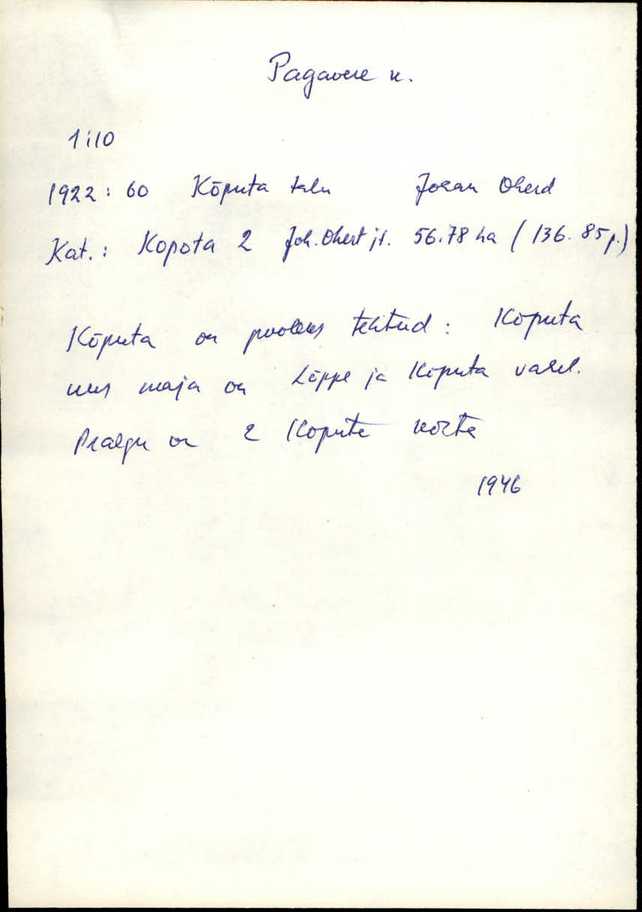 Pagavere k.
1:10
1922: 60 Kõputa talu Johan Oherd
Kat.: Kopota 2 Joh. Ohert jt. 56.78 ha (136.85 p.)
Kõputa on pooleks tehtud: Kõputa
uus maja on Lõppe ja Kõputa vahel.
Praegu on 2 Kõputa kohta
1946